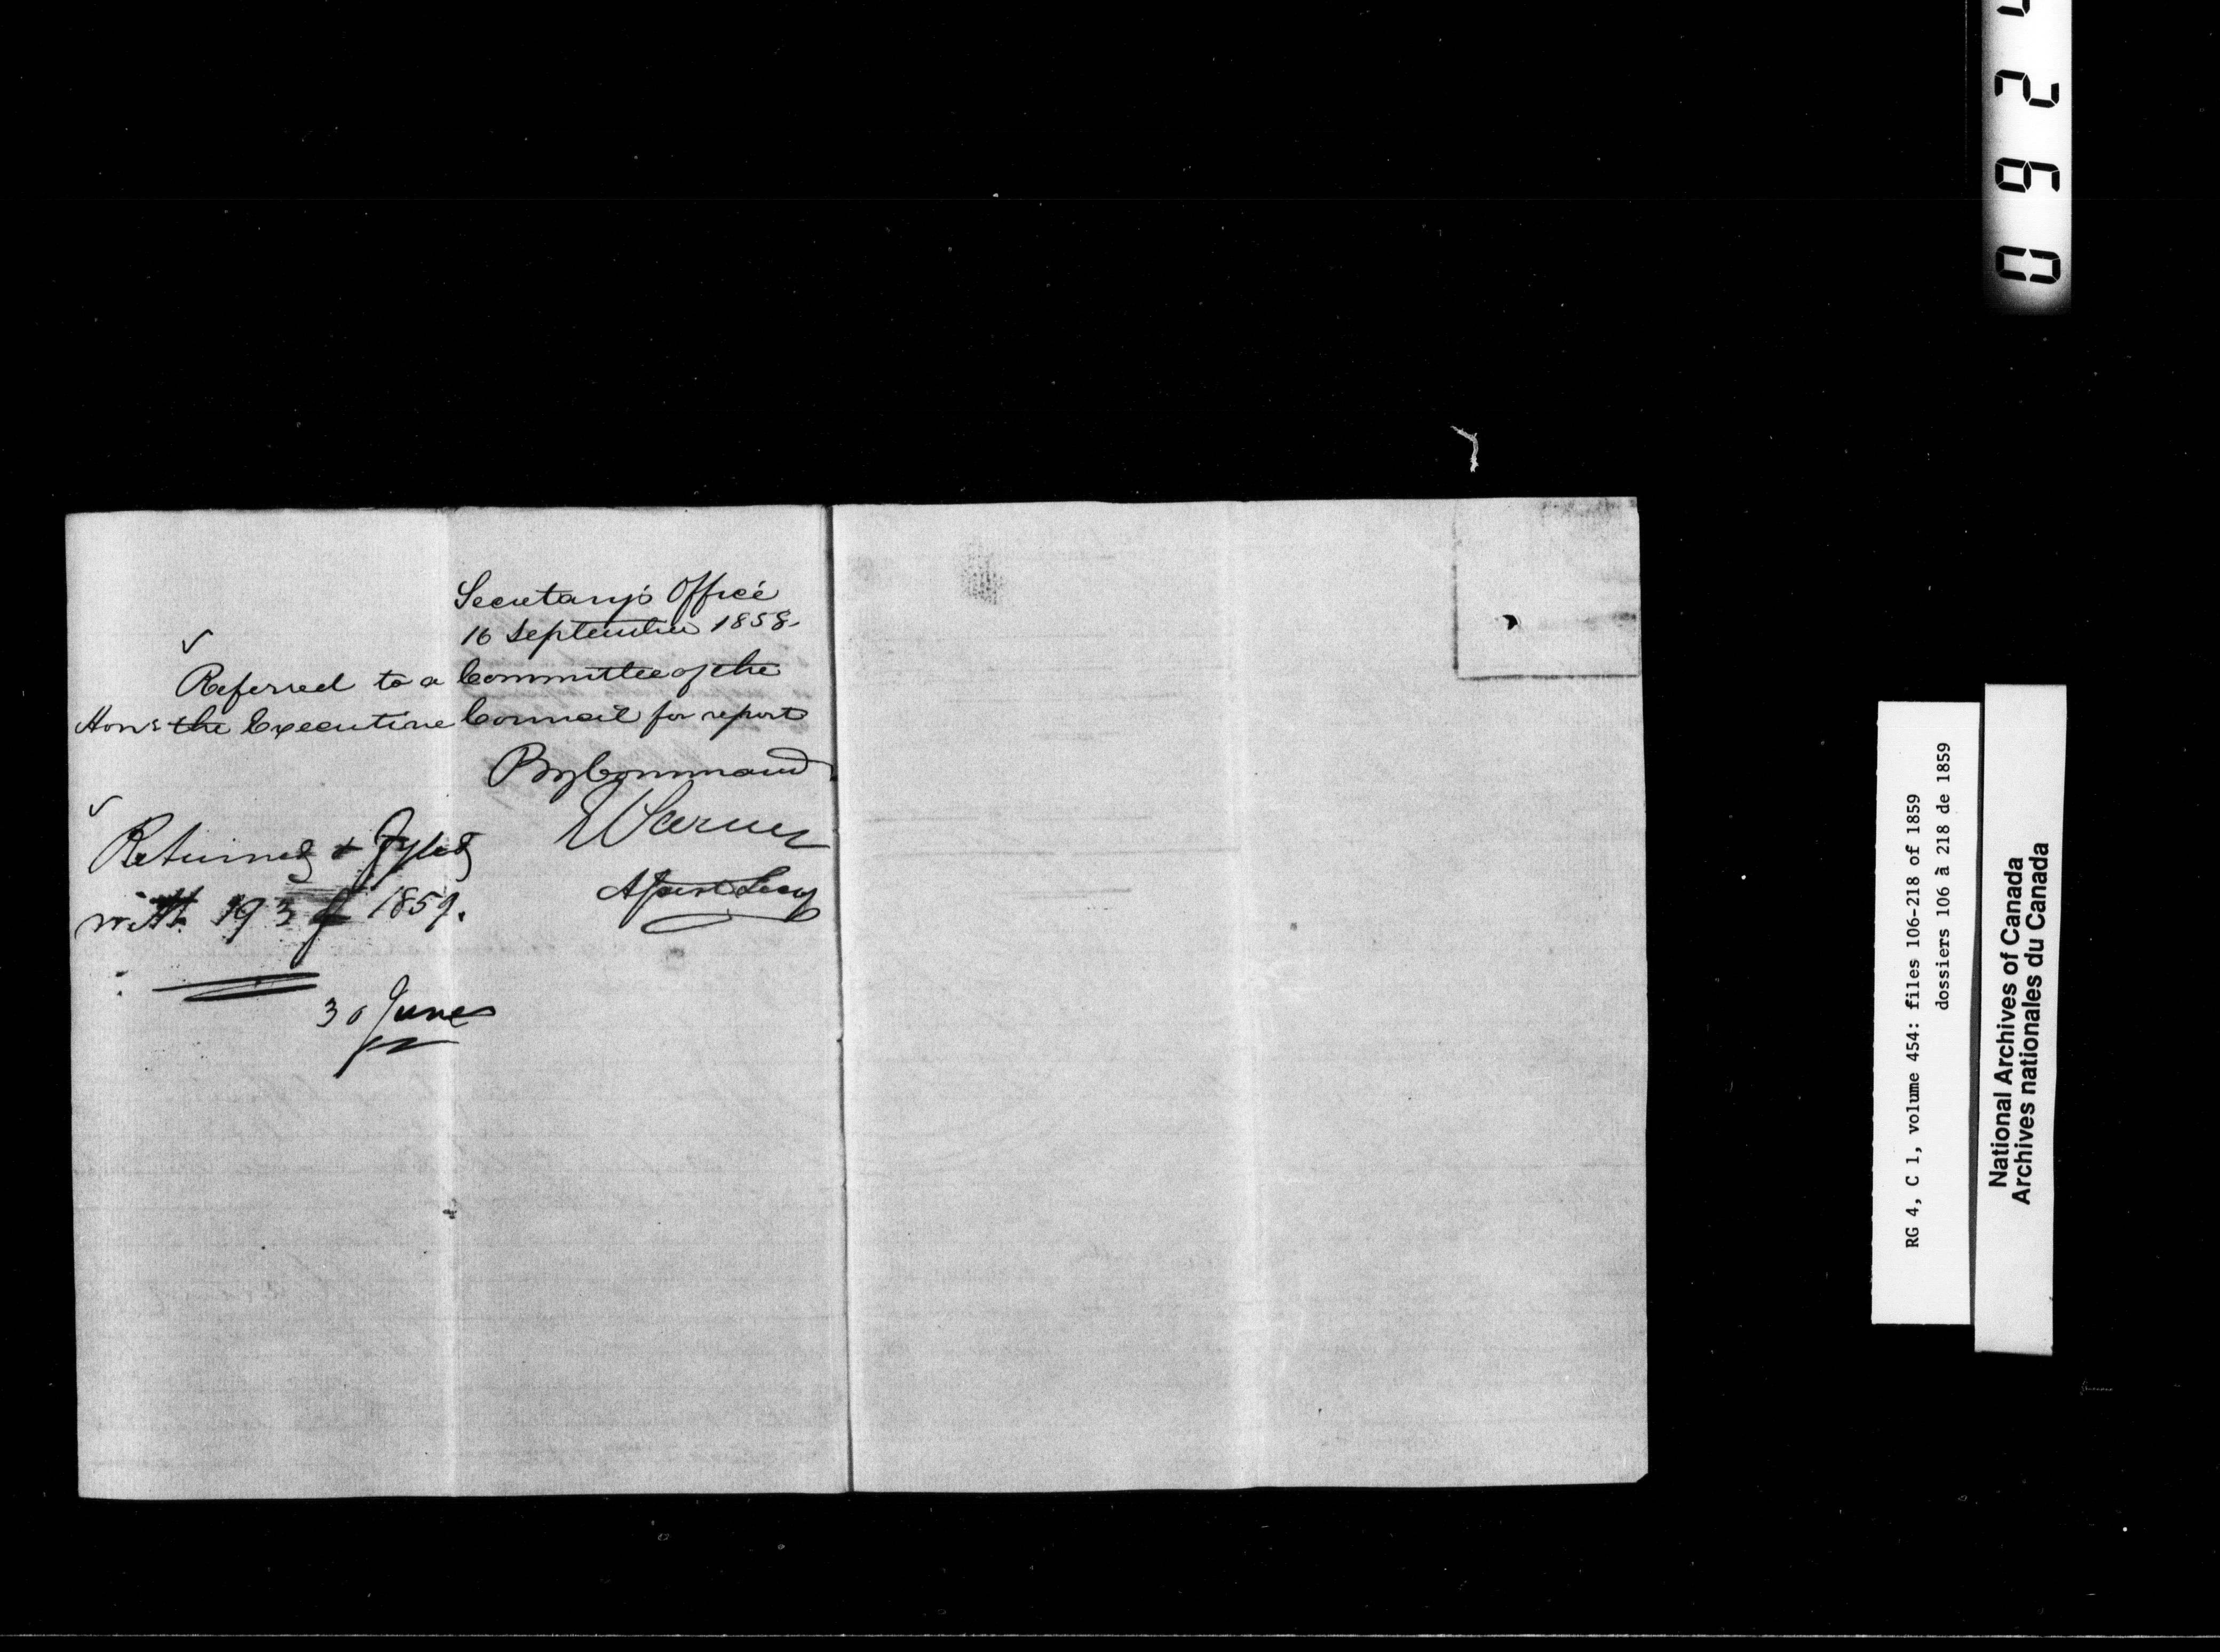 Secretary's Office
16 September 1858.
Referred to a Committee of the
Honl. the Executive Council for report
By Command
Asst Secy
Returned & Fyled
with 193 of 1859.
30 June
RG 4, C 1, volume 454: files 106-218 of 1859
dossiers 106 à 218 de 1859
National Archives of Canada
Archives nationales du Canada
0 9 2